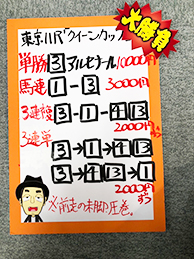 大勝負
東京11R「クイーンカップ」
単勝 3 アルセナール 10000円
馬連 1-3 3000円
3連複 3-1-4 13 2000円ずつ
3連単 3→1→4 13
3→4 13→1
2000円ずつ
※前走の末脚圧巻。